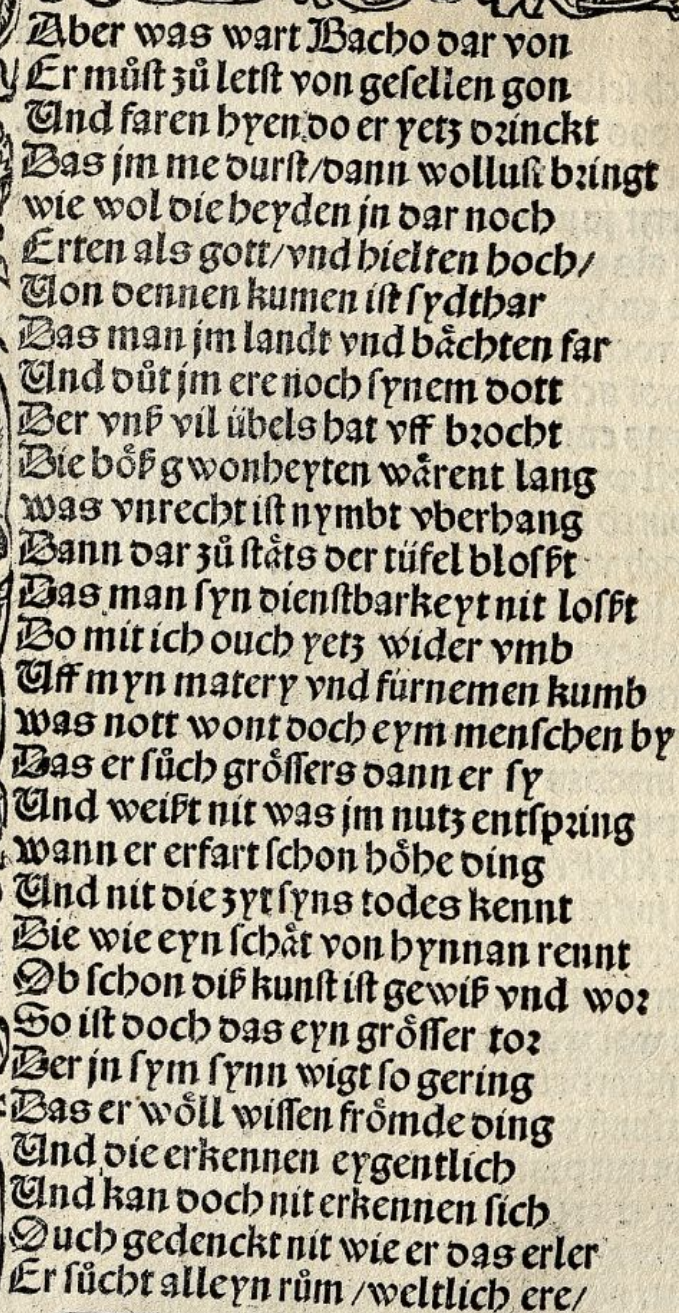 Aber was wart Bacho dar von
Er můſt zů letſt von geſellen gon
Und faren hyen do er yetz drinckt
Das jm me durſt/dann wolluſt bringt
wie wol die heyden jn dar noch
Erten als gott/vnd hielten hoch/
Von dennen kumen iſt ſydthar
Das man jm landt vnd bächten far
Und důt jm ere noch ſynem dott
Der vnß vil übels hat vff brocht
Die böß gwonheyten wärent lang
was vnrecht iſt nymbt vberhang
Dann dar zů ſtäts der tüfel bloſßt
Das man ſyn dienſtbarkeyt nit loſßt
Do mit ich ouch yetz wider vmb
Uff myn matery vnd fürnemen kumb
was nott wont doch eym menſchen by
Das er ſůch gröſſers dann er ſy
Und weißt nit was jm nutz entſpring
wann er erfart ſchon höhe ding
Und nit die zyt ſyns todes kennt
Die wie eyn ſchät von hynnan rennt
Ob ſchon diß kunſt iſt gewiß vnd wor
So iſt doch das eyn gröſſer tor
Der jn ſym ſynn wigt ſo gering
Das er wöll wiſſen frömde ding
Und die erkennen eygentlich
Und kan doch nit erkennen ſich
Ouch gedenckt nit wie er das erler
Er ſůcht alleyn rům /weltlich ere/